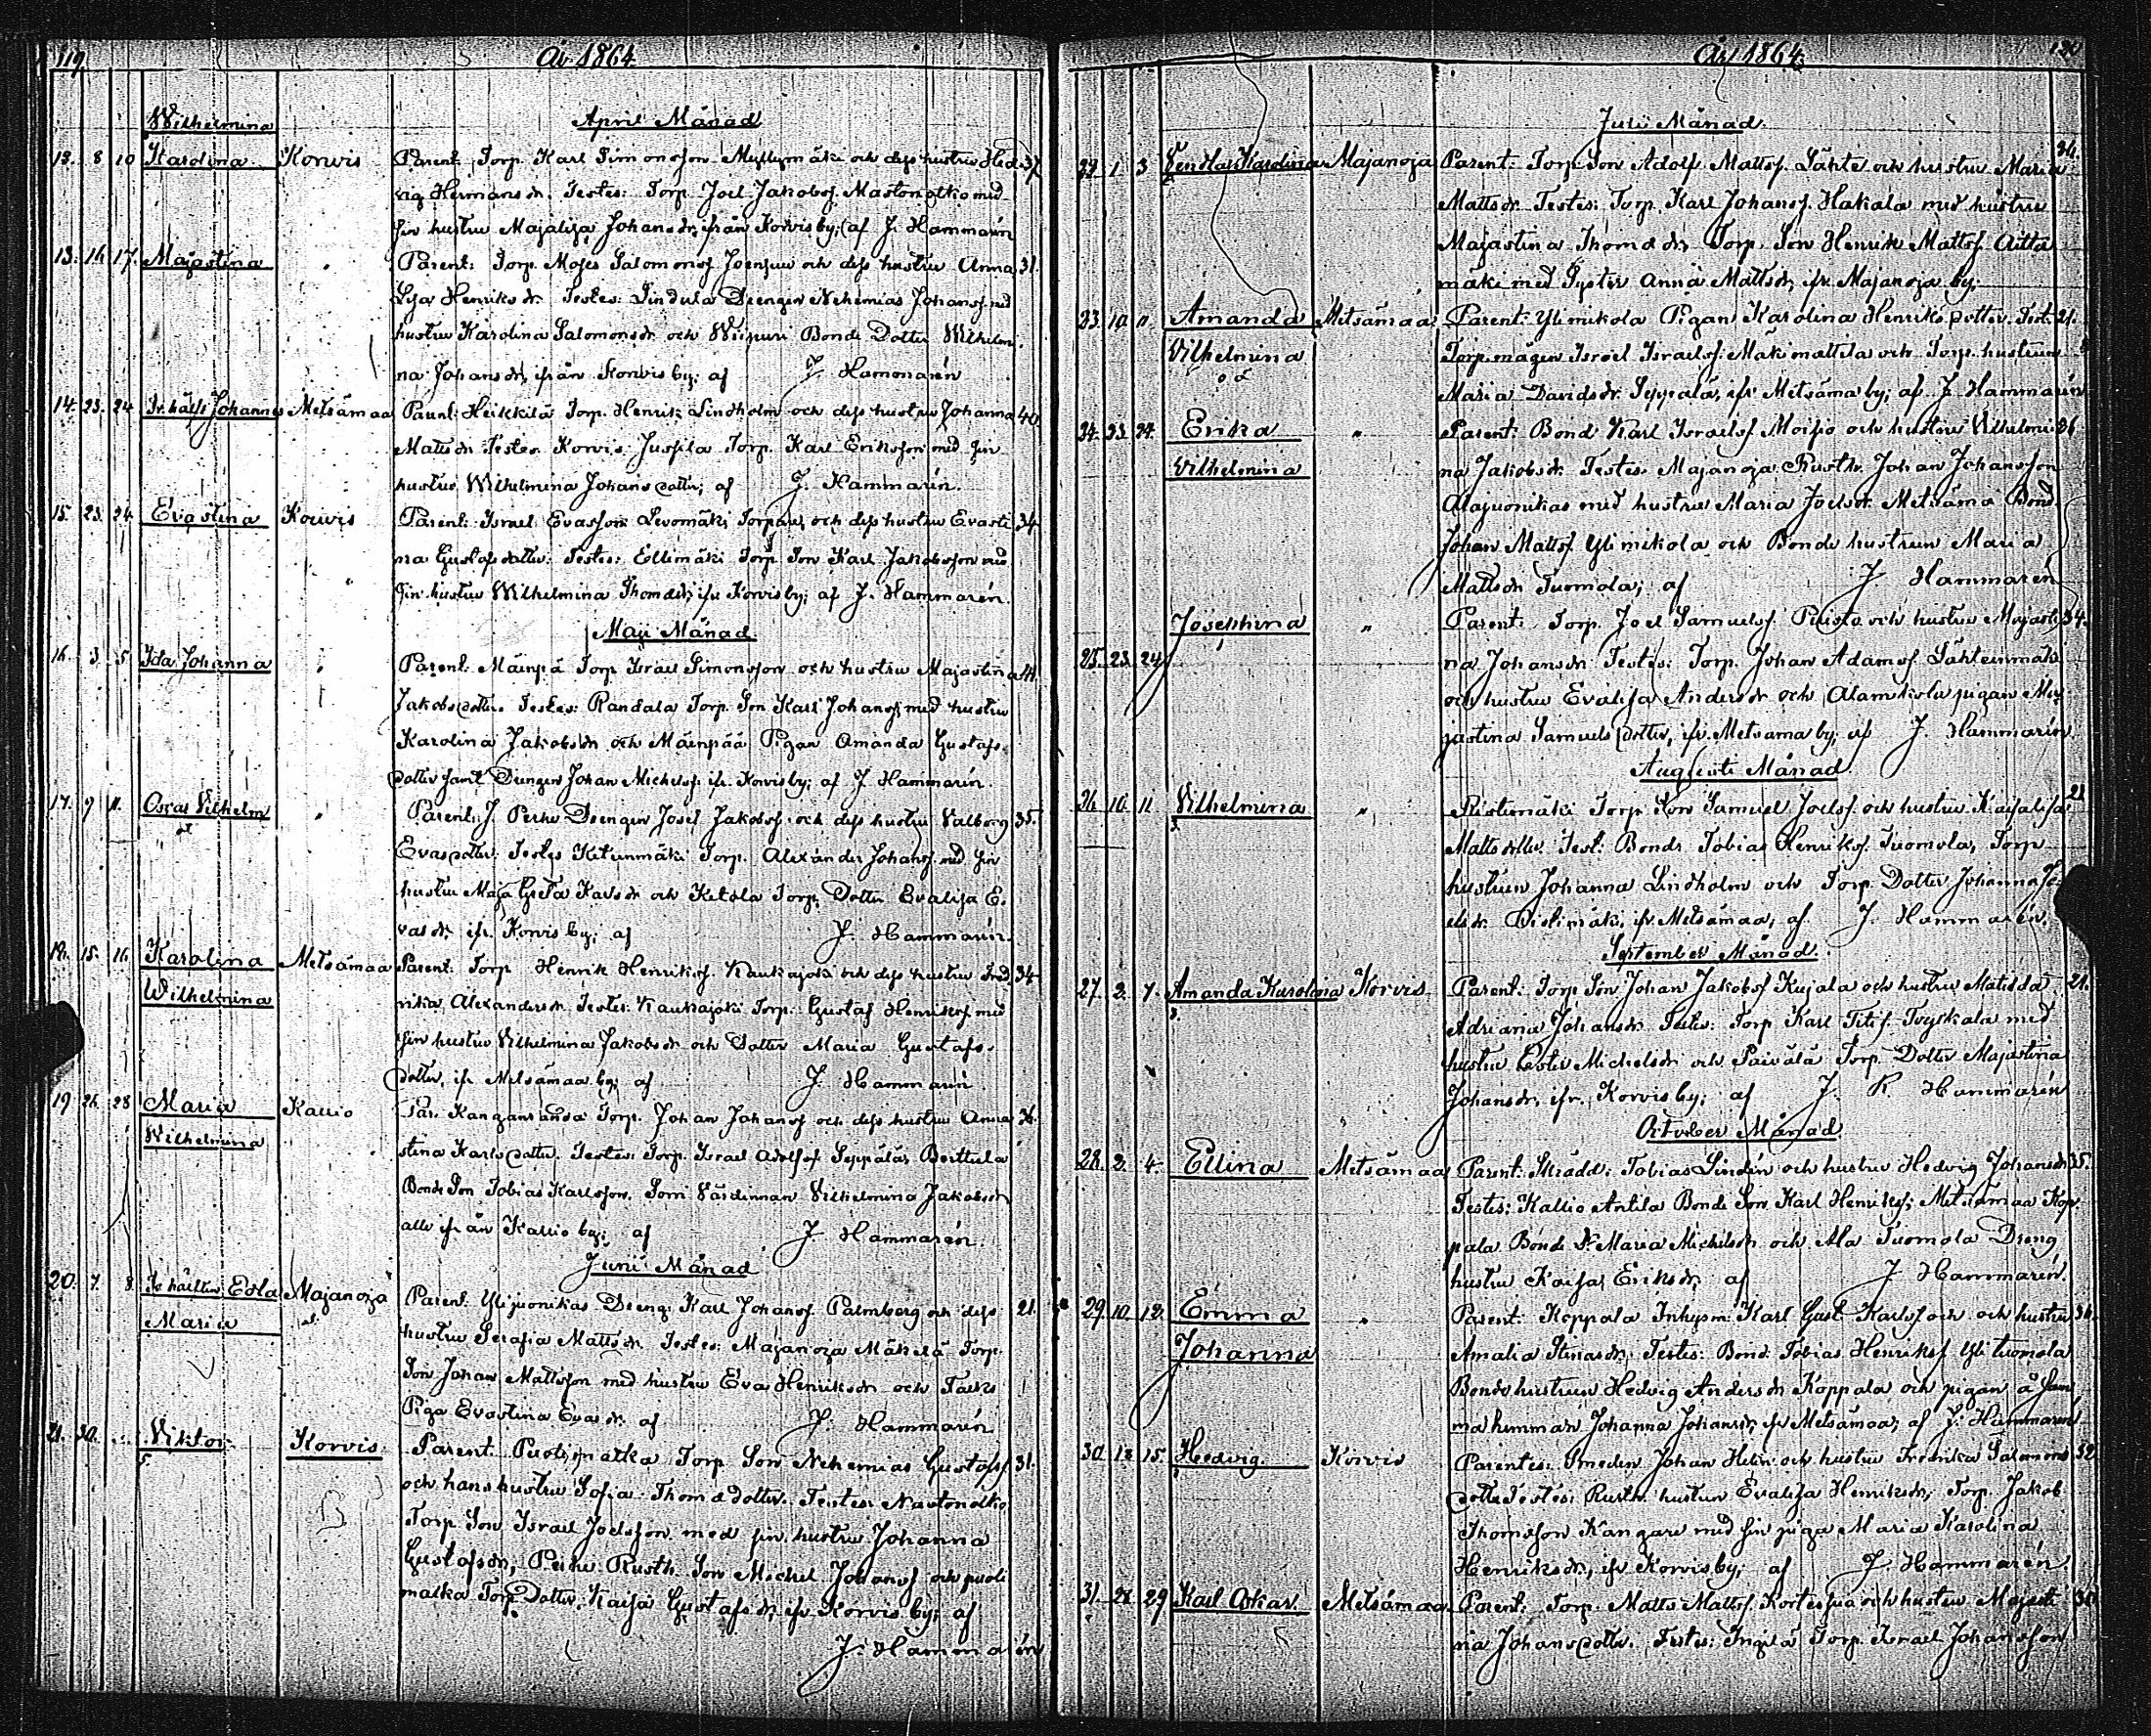 119
År 1864
April Månad
Wilhelmina
12. 8 10 Karolina Korvis Parent: Torp. Karl Simonsson Myllymäki och dess hustru Hed 37
vig Hermans dr. Testes: Torp. Joel Jakobss. med
sin hustru Majalisa Johansdr, från Korvis by; af J. Hammarén
13. 16. 17. Majastina " Parent: Torp. Moses Salomonss. Joensuu och dess hustru Anna 31.
Lisa Henriks dr. Testes: Lindula Drengen Nehemias Johanss. med
hustru Karolina Salomonsdr och Wiipuri Bonde Dotter Wilhelmi
na Johansdr, från Korvis by; af J. Hammarén
14. 23. 24 Johannes Metsämaa Parent: Heikkilä Torp. Henrik Lindholm och dess hustru Johanna 40
Mattsdr. Testes Korvis Jussila Torp. Karl Eriksson med sin
hustru Wilhelmina Johansdotter; af J. Hammarén.
15. 23. 24 Evastina Korvis Parent: Israel Evasson Levomäki Torpare, och dess hustru Evasti 34
na Gustafsdotter. Testes: Torp. Son Karl Jakobsson med
sin hustru Wilhelmina Thomasdr, ifr. Korvis by; af J. Hammarén.
Maji Månad
16. 3. 5. Ida Johanna " Parent: Mäenpä Torp. Israel Simonsson och hustru Majastina 41
Jakobsdotter. Testes: Randala Torp. Son Karl Johanss. med hustru
Karolina Jakobsdr och Mäenpää Pigan Amanda Gustafs
dotter samt Drengen Johan Michelss. ifr. Korvis by; af J. Hammarén.
17. 9 11. Oscar Vilhelm " Parent: J. Perho Drengen Josef Jakobss. och dess hustru Valborg 35.
Evasdotter. Testes Torp. Alexander Johanss. med sin
hustru Maja Greta Karlsdr och Ketola Torp. Dotter Evalisa E.
vasdr, ifr. Korvis by; af J. Hammarén.
18. 15. 16 Karolina Metsämaa Parent: Torp. Henrik Henrikss. Kaukajoki och dess hustru Fred 34
Wilhelmina rika Alexandersdr. Testes: Kaukajoki Torp. Gustaf Henrikss. med
sin hustru Vilhelmina Jakobsdr och Dotter Maria Gustafs-
dotter, ifr. Metsämaa by; af J. Hammarén
19 26. 28 Maria Kallio Par. Torp. Johan Johanss. och dess hustru Anna 36.
Wilhelmina stina Karlsdotter. Testes: Torp. Israel Adolfss. Seppälä, Berttula
Bonde Son Tobias Karlsson. Värdinnan Vilhelmina Jakobsdr
alle ifrån Kallio by; af J. Hammarén.
Junii Månad
20. 7. 8. Edla Majanoja Parent: Ylijuonikas Dreng: Karl Johanss. Palmberg och dess 21.
Maria hustru Serafia Mattsdr. Testes: Majanoja Mäkilä Torp.
Son Johan Mattsson med hustru Eva Henriksdr och
Piga Evastina Evasdr. af J. Hammarén
21. 30. Viktor Korvis Parent: Puolimatka Torp Son Nehemias Gustafss. 31.
och hans hustru Sofia Thomadotter. Testes:
Torp. Son Israel Joelsson med sin hustru Johanna
Gustafsdr, Perho Rusth. Son Michel Johanss. och puoli
matka Torp. Dotter Kaisa Gustafsdr, ifr. Korvis by; af
J. Hammarén
120
Åhr 1864
Julii Månad.
22. 1. 3 Karolina Majanoja Parent: Torp. Son Adolf Mattss. Lähte och hustru Maria 34.
Mattsdr. Testes: Torp. Karl Johanss. Hakala med hustru
Majastina Thomadr, Torp. Son Henrik Mattss. Aitta
mäki med Syster Anna Mattsdr, ifr. Majanoja by;
23. 10. 11. Amanda Metsämaa Parent: Ylimikola Pigan Karolina Henriks dotter. Test: 21.
Vilhelmina Torp. mågen Israel Israelss. Mäkimattila och Torp. hustrun
Maria Davidsdr. Seppälä, ifr. Metsäma by; af J. Hammarén
24. 23. 24. Erika " Parent: Bond. Karl Israelss. Moisio och hustru Vilhelmi 26.
Vilhelmina na Jakobsdr. Testes: Majanoja Rusth. Johan Johansson
Alajuonikas med hustru Maria Joelsdr. Metsäma Bond.
Johan Mattss. Ylimikola och Bonde hustrun Maria
Mattsdr Tuomola; af J. Hammarén
25. 23. 24 Josephina " Parent: Torp. Joel Samuelss. och hustru Majasti 34.
na Johansdr. Testes: Torp. Johan Adamss. Lähteenmäki
och hustru Evalisa Andersdr och pigan Ma
jastina Samuels dotter, ifr. Metsäma by; af J. Hammarén.
Augusti Månad
26. 10. 11 Vilhelmina " Ristimäki Torp. Son Samuel Joelss. och hustru Kaisalisa 21
Mattsdotter. Test: Bonde Tobias Henrikss. Tuomola, Torp.
hustrun Johanna Lindholm och Torp. Dotter Johanna Jo
elsdr. Ristimäki, ifr. Metsämaa; af J. Hammarén.
September Månad.
27. 2. 7. Amanda Karolina Korvis Parent: Torp. Son Johan Jakobss. Kujala och hustru Matilda 21.
Adriana Johansdr. Testes: Torp. Karl Titss. med
hustru Ester Michelsdr och Päivälä Torp. Dotter Majastina
Johansdr, ifr. Korvis by; af J. R. Hammarén
October Månad
28. 2. 4. Ellina Metsämaa Parent: Skrädd: Tobias Lindén och hustru Hedvig Johansdr 35.
Testes: Kallio Antila Bonde Son Karl Henrikss; Metsämaa Kop
pala Bonde Dr Maria Michelsdr och Ala Tuomola Dreng
hustru Kaisa Eriksdr; af J. Hammarén.
29. 10. 12 Emma " Parent: Koppala Inhysm: Karl Gust. Karlss. och hustru 36.
Johanna Amalia Stinasdr. Testes: Bond. Tobias Henrikss. Ylituomola
Bonde hustrun Hedvig Andersdr Koppala och pigan å sam
ma hemman Johanna Johansdr, ifr. Metsämaa; af J. Hammarén
30 13 15. Hedvig. Korvis Parentes: Smeden Johan Helin och hustru Fredrika Salomons 32
dotter Testes: Rusth. hustrun Evalisa Henriksdr, Torp. Jakob
Thomsson Kangare med sin piga Maria Karolina
Henriksdr, ifr Korvis by; af J. Hammarén.
31. 28 29 Karl Oskar Metsämaa Parent: Torp. Matts Mattss. och hustru Majasti 30
na Johansdotter. Testes: Ingilä Torp. Israel Johansson